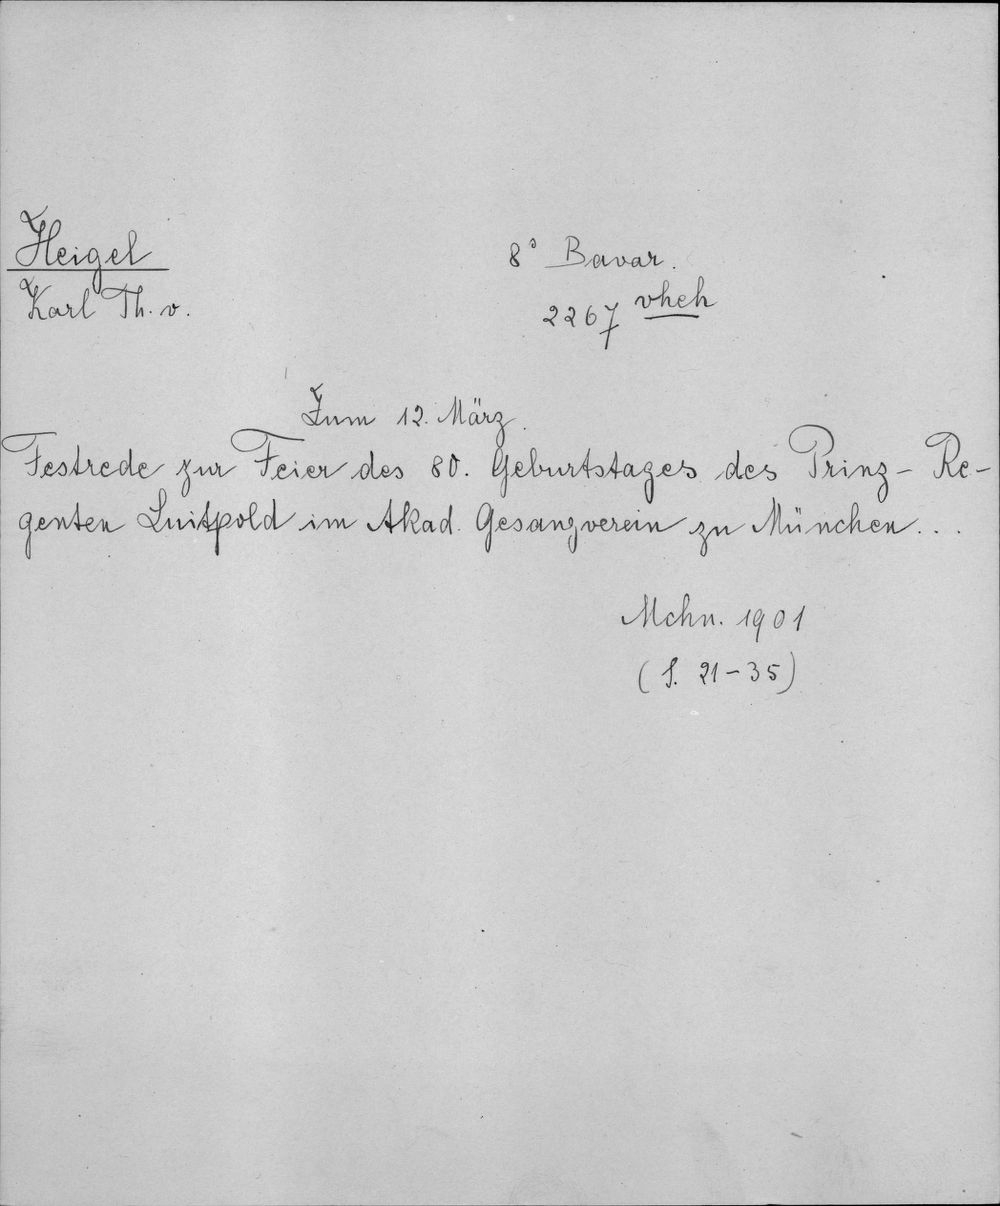 Heigel
Karl Th. v.
8° Bavar.
2267 vheh
Zum 12. März.
Festrede zur Feier des 80. Geburtstages des Prinz-Re-
genten Luitpold im Akad. Gesangverein zu München...
Mchn. 1901
(S. 21-35)